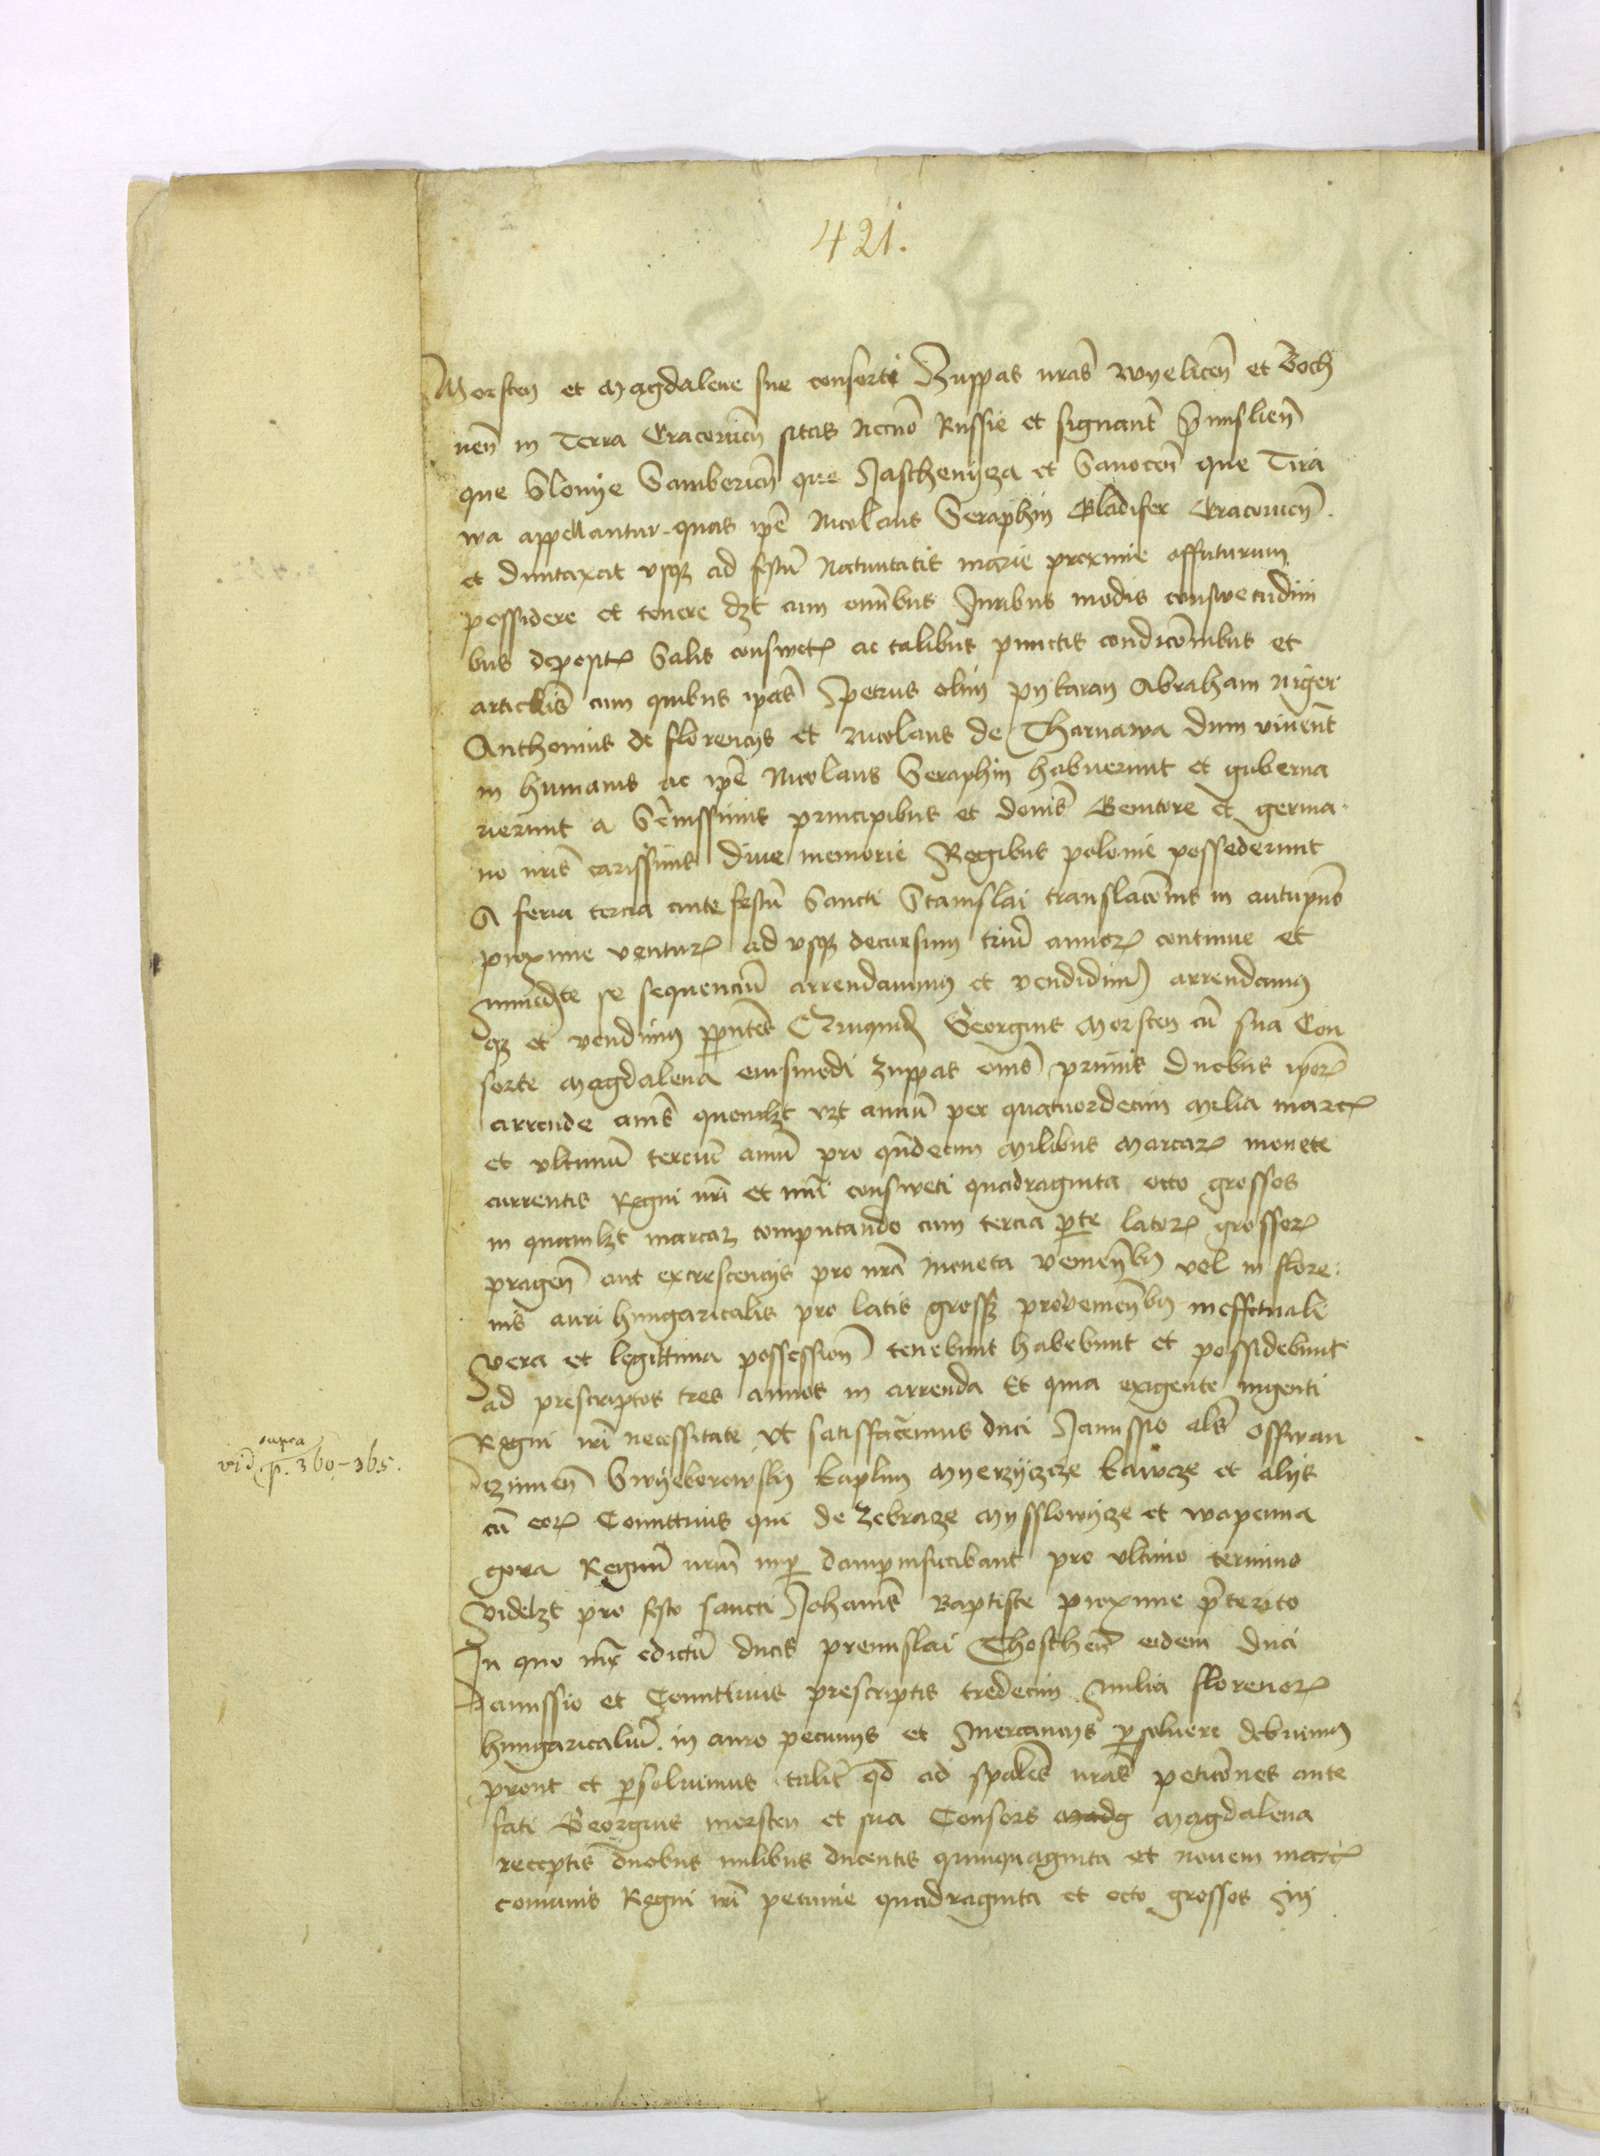 421.
Morsten et Magdalene sue consorti Zuppas nras̄ Wyelicen̄ et Boch
nen̄ in Terra Cracovien̄ sitas Necnō Russie et signant̄ p̄mislien̄
que Slonye Samborien̄ que Jasthenycza et Sanocen̄ que Tira
wa appellantur quas ip̄e Nicolaus Seraphin Gladifer Cracovien̄.
et dumtaxat usqȝ ad festū Nativitatis marie proxime affuturum
possidere et tenere dȝt cum omībus Juribus modis conswetudini
bus Salis conswetꝝ ac talibus punctis condicōnibus et
articlis̄ cum quibus ip̄as Petrus olim pykaran Abraham niger
Anthonius de florencys et Nicolaus de Tharnawa dum vivent̄
in humanis ac ip̄e Nicolaus Seraphin habuerunt et guberna
verunt a Serēnissimis principibus et domīs Genitore et germa
no nrīs carissimis dive memorie Regibus polonie possederunt
A feria tercia ante festū Sancti Stanislai translacōnis in autupno
proxime venturꝝ ad usqȝ decursum triū annorꝝ continue et
immediate se sequenciū arrendavimus et vendidimus arrendamus
qȝ et vendimus pn̄tes Georgius Morsten cū sua Con
sorte Magdalena eiusmodi zuppas om̄s primis duobus ipōrꝝ
arrende annis quemlȝt vȝt annū per quatuordecim milia marcꝝ
et ultimū terciū annū pro quīdecim milibus Marcarꝝ monete
currentis Regni nrī et nūi consweti quadraginta octo grossos
in quamlȝt marcaꝫ computando cum tercia pȩte latorꝝ grossorꝝ
pragen̄ aut excrescencys pro nrā Moneta venien̄bus vel in flore
nis auri hungaricalis pro latis grossꝫ provenien̄bus in effectuali
vera et legittima possession̄ tenebunt habebunt et possidebunt
ad prescriptos tres annos in arrenda Et quia exigente ingenti
Regni nrī necessitate ut satisfacēmus duci Janussio als̄ Osswan
czimen̄ Swyeborowsky kaplirz Myerzyczcze kawcze et alys
cū eorꝝ Comittivis qui de Zebracze Mysslowycze et wapenna
gora Regnū nrūm nup̄ dampnificabant pro ultimo termino
videlȝt pro festo sancti Johanīs Baptiste proxime p̄terito
In quo iux̄ edictū ducis premislai Thosthen̄ eidem duci
Janussio et Comittivis prescriptis tredecim milia florenorꝝ
hungaricaliū in auro pecunys et Mercancys p̱solvere debuimus
prout et p̱solvimus talit̄ qd̄ ad sp̄ales nras̄ peticōnes ante
fati Georgius morsten et sua Consors Madg Magdalena
receptis duobus milibus ducentis quinquaginta et novem marcꝝ
comunis Regni nrī pecunie quadraginta et octo grossos in
supra
vid. p. 360-365.